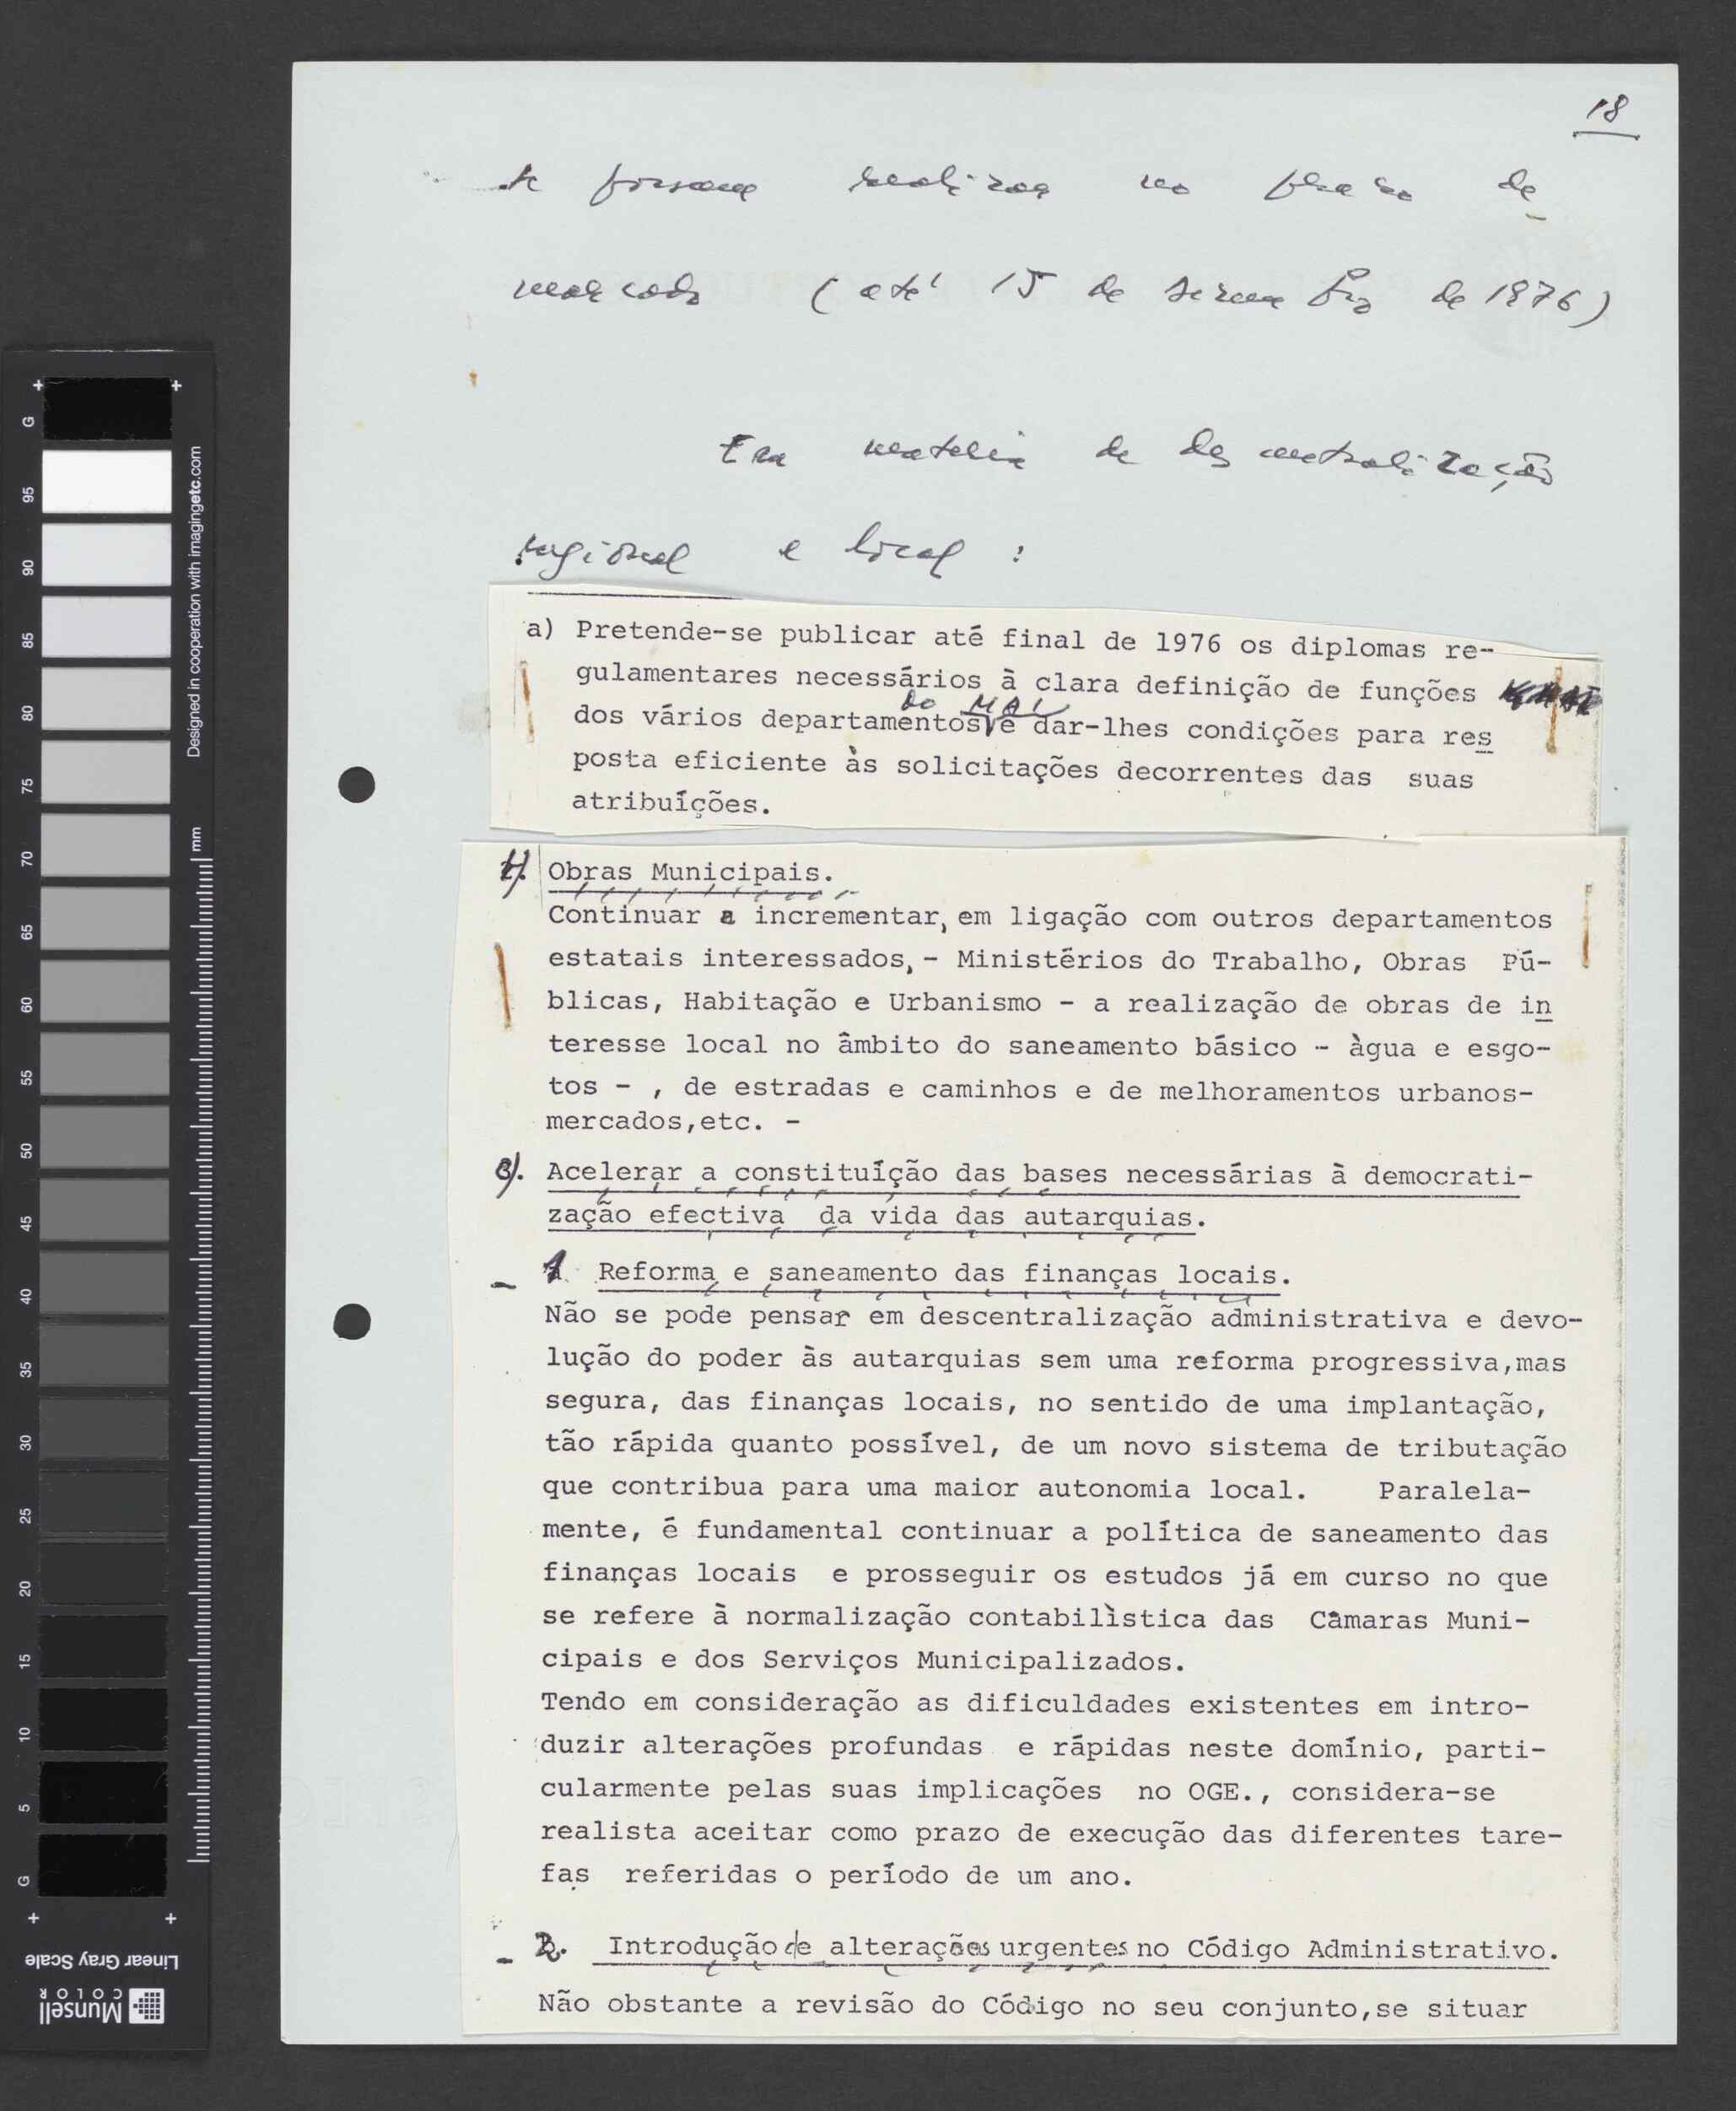 18
se possam realizar no prazo de
marcado (até 15 de Dezembro de 1976)
Em matéria de descentralização
regional e local :
a) Pretende-se publicar até final de 1976 os diplomas re-
gulamentares necessários à clara definição de funções
do MAI
dos vários departamentos e dar-lhes condições para res
posta eficiente às solicitações decorrentes das suas
atribuíções.
Obras Municipais.
Continuar a incrementar, em ligação com outros departamentos
estatais interessados, - Ministérios do Trabalho, Obras Pú-
blicas, Habitação e Urbanismo - a realização de obras de in
teresse local no âmbito do saneamento básico - àgua e esgo-
tos - , de estradas e caminhos e de melhoramentos urbanos-
mercados,etc. -
Acelerar a constituíção das bases necessárias à democrati-
zação efectiva da vida das autarquias.
- 1 Reforma e saneamento das finanças locais.
Não se pode pensar em descentralização administrativa e devo-
lução do poder às autarquias sem uma reforma progressiva,mas
segura, das finanças locais, no sentido de uma implantação,
tão rápida quanto possível, de um novo sistema de tributação
que contribua para uma maior autonomia local. Paralela-
mente, é fundamental continuar a política de saneamento das
finanças locais e prosseguir os estudos já em curso no que
se refere à normalização contabilìstica das Câmaras Muni-
cipais e dos Serviços Municipalizados.
Tendo em consideração as dificuldades existentes em intro-
duzir alterações profundas e rápidas neste domínio, parti-
cularmente pelas suas implicações no OGE., considera-se
realista aceitar como prazo de execução das diferentes tare-
fas referidas o período de um ano.
- 2. Introdução de alterações urgentes no Código Administrativo.
Não obstante a revisão do Código no seu conjunto,se situar
G 95 90 85 80 75 70 65 60 55 50 45 40 35 30 25 20 15 10 5 G
Designed in cooperation with imagingetc.com
mm
Linear Gray Scale
Munsell
COLOR